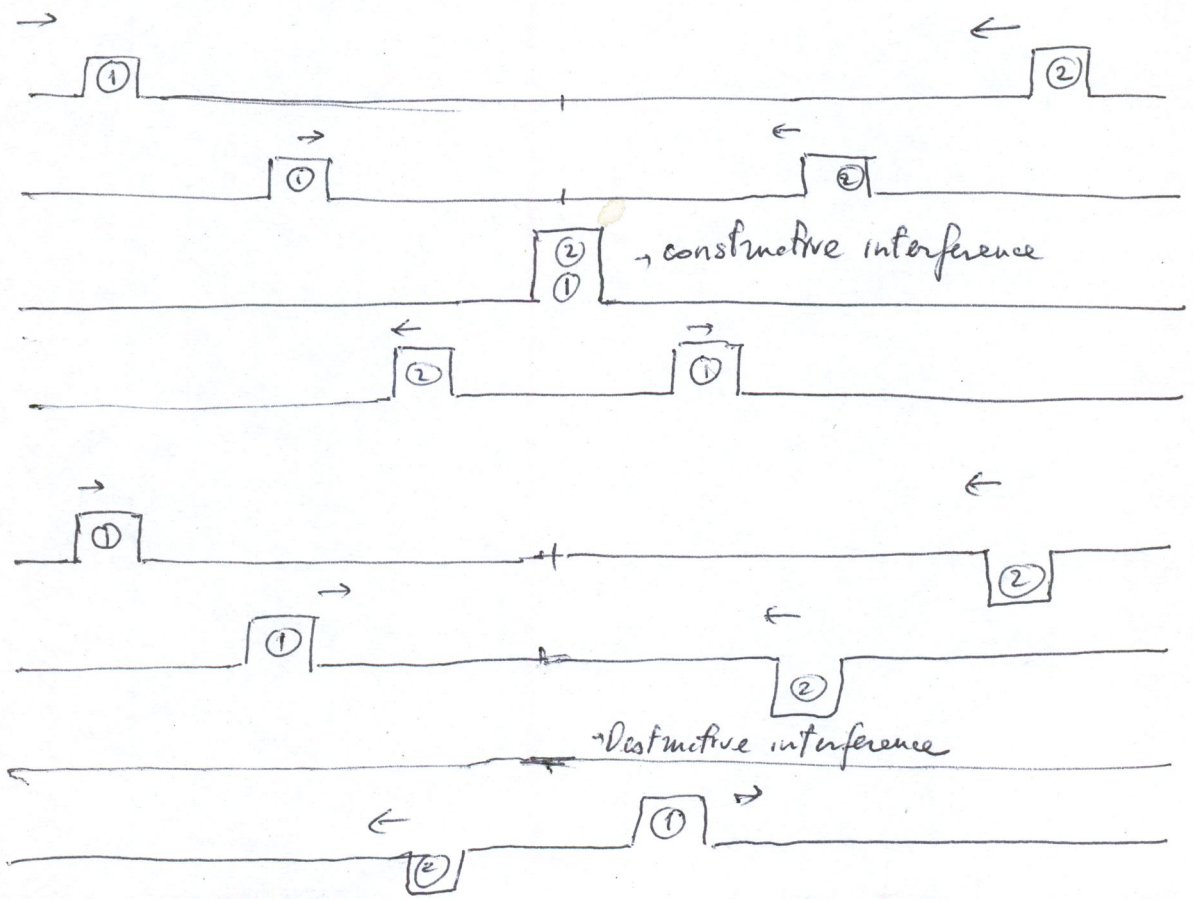 ① ②
① ②
②
①
constructive interference
② ①
① ②
① ②
Destructive interference
② ①